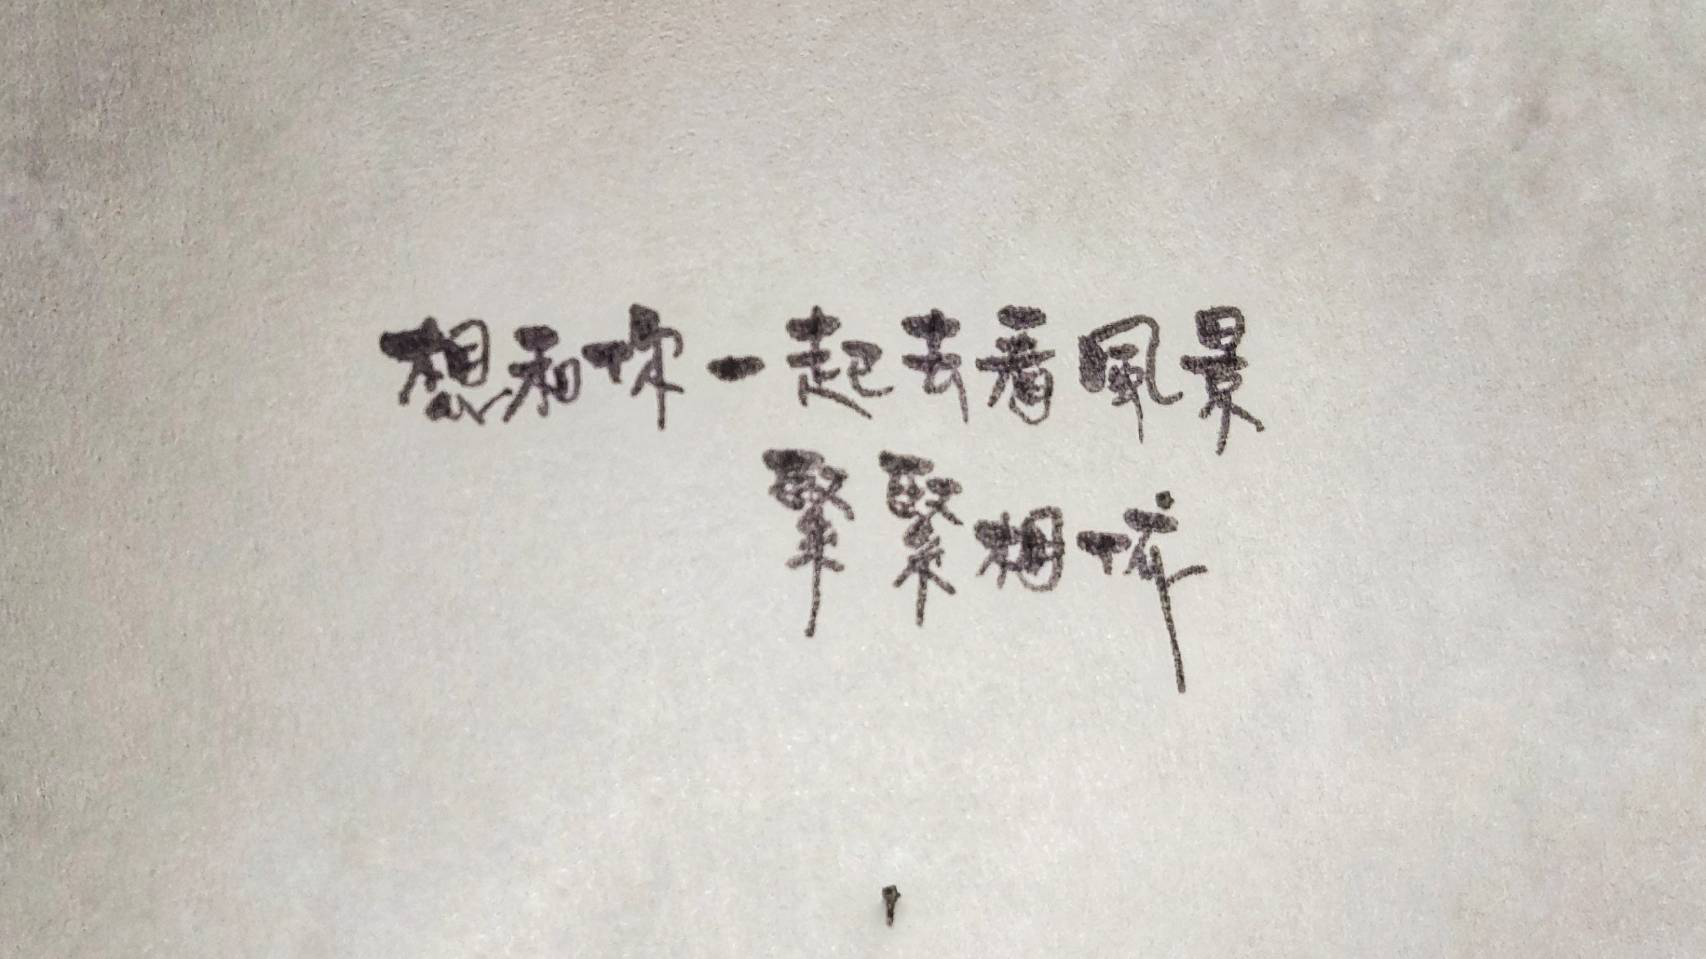 想和你一起去看風景
緊緊相依